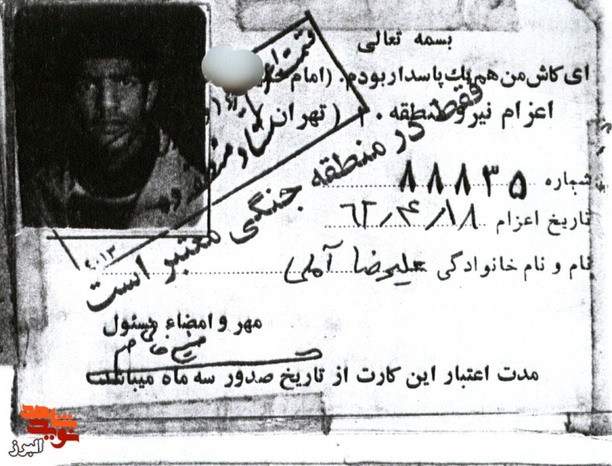 بسمه تعالی
ای کاش من هم یک پاسدار بودم. (امام
اعزام نیرو منطقه ۱۰ (تهران
شماره ۸۸۸۳۵
تاریخ اعزام ۶۲/۴/۱۸
نام و نام خانوادگی علیرضا آملی
فقط در منطقه جنگی معتبر است
مهر و امضاء مسئول
مدت اعتبار این کارت از تاریخ صدور سه ماه میباشد
نوید شاهد
البرز